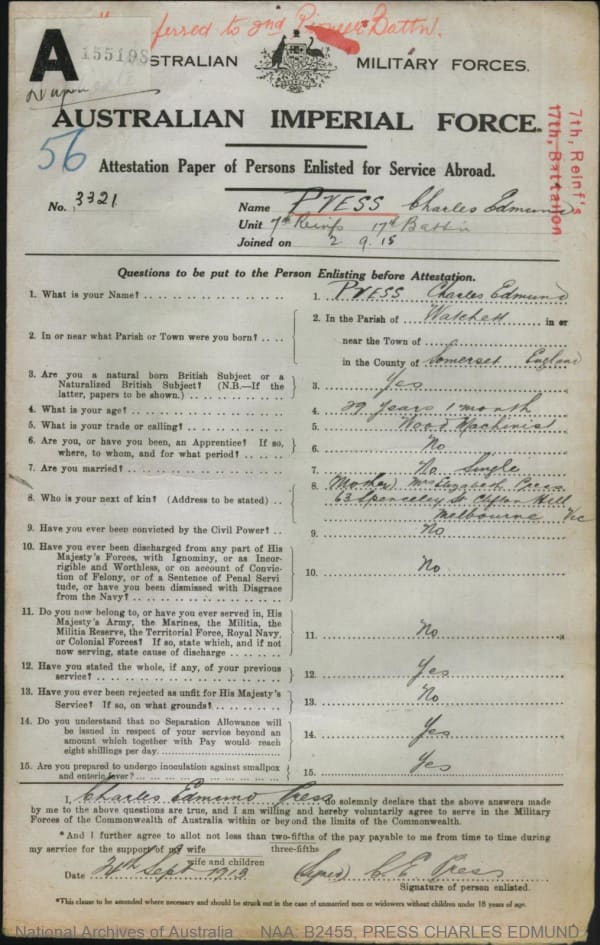 ferred to 2nd Pioneer Battn.
A 155198
AUSTRALIAN MILITARY FORCES.
AUSTRALIAN IMPERIAL FORCE.
56
7th, Reinf's
17th, Battalion
Attestation Paper of Persons Enlisted for Service Abroad.
No. 3321
Name PRESS Charles Edmund
Unit 7th Reinfs 17th Battn
Joined on 2 9 15
Questions to be put to the Person Enlisting before Attestation.
1. What is your Name? 1. PRESS Charles Edmund
2. In or near what Parish or Town were you born? 2. In the Parish of Watchett in or
near the Town of
in the County of Somerset England
3. Are you a natural born British Subject or a
Naturalized British Subject? (N.B.—If the
latter, papers to be shown.) 3. Yes
4. What is your age? 4. 29 years 1 month
5. What is your trade or calling? 5. Wood Machinist
6. Are you, or have you been, an Apprentice? If so,
where, to whom, and for what period? 6. No
7. Are you married? 7. No Single
8. Who is your next of kin? (Address to be stated) 8. Mother) Mrs Elizabeth Press
63 Spenceley St Clifton Hill
Melbourne Vic
9. Have you ever been convicted by the Civil Power? 9. No
10. Have you ever been discharged from any part of His
Majesty's Forces, with Ignominy, or as Incor-
rigible and Worthless, or on account of Convic-
tion of Felony, or of a Sentence of Penal Servi
tude, or have you been dismissed with Disgrace
from the Navy? 10. No
11. Do you now belong to, or have you ever served in, His
Majesty's Army, the Marines, the Militia, the
Militia Reserve, the Territorial Force, Royal Navy,
or Colonial Forces? If so, state which, and if not
now serving, state cause of discharge 11. No
12. Have you stated the whole, if any, of your previous
service? 12. Yes
13. Have you ever been rejected as unfit for His Majesty's
Service? If so, on what grounds? 13. No
14. Do you understand that no Separation Allowance will
be issued in respect of your service beyond an
amount which together with Pay would reach
eight shillings per day. 14. Yes
15. Are you prepared to undergo inoculation against smallpox
and enteric fever? 15. Yes
I, Charles Edmund Press do solemnly declare that the above answers made
by me to the above questions are true, and I am willing and hereby voluntarily agree to serve in the Military
Forces of the Commonwealth of Australia within or beyond the limits of the Commonwealth.
*And I further agree to allot not less than two-fifths of the pay payable to me from time to time during
three-fifths
my service for the support of my wife
wife and children
Date 24th Sept 1915 (Signed) C. E. Press
Signature of person enlisted.
*This clause to be amended where necessary and should be struck out in the case of unmarried men or widowers without children under 18 years of age.
National Archives of Australia NAA: B2455, PRESS CHARLES EDMUND